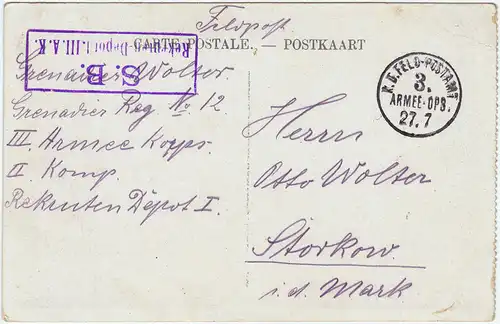 Feldpost
CARTE POSTALE. — POSTKAART
S. B.
Rekruten-Depot I. III. A. K.
Grenadier Wolter
Grenadier Reg No 12
III Armee Korps
II Komp.
Rekruten Dépot I
K.D. FELD-POSTAMT
3.
ARMEE-OPS.
27.7
Herrn
Otto Wolter
Storkow
i. d. Mark